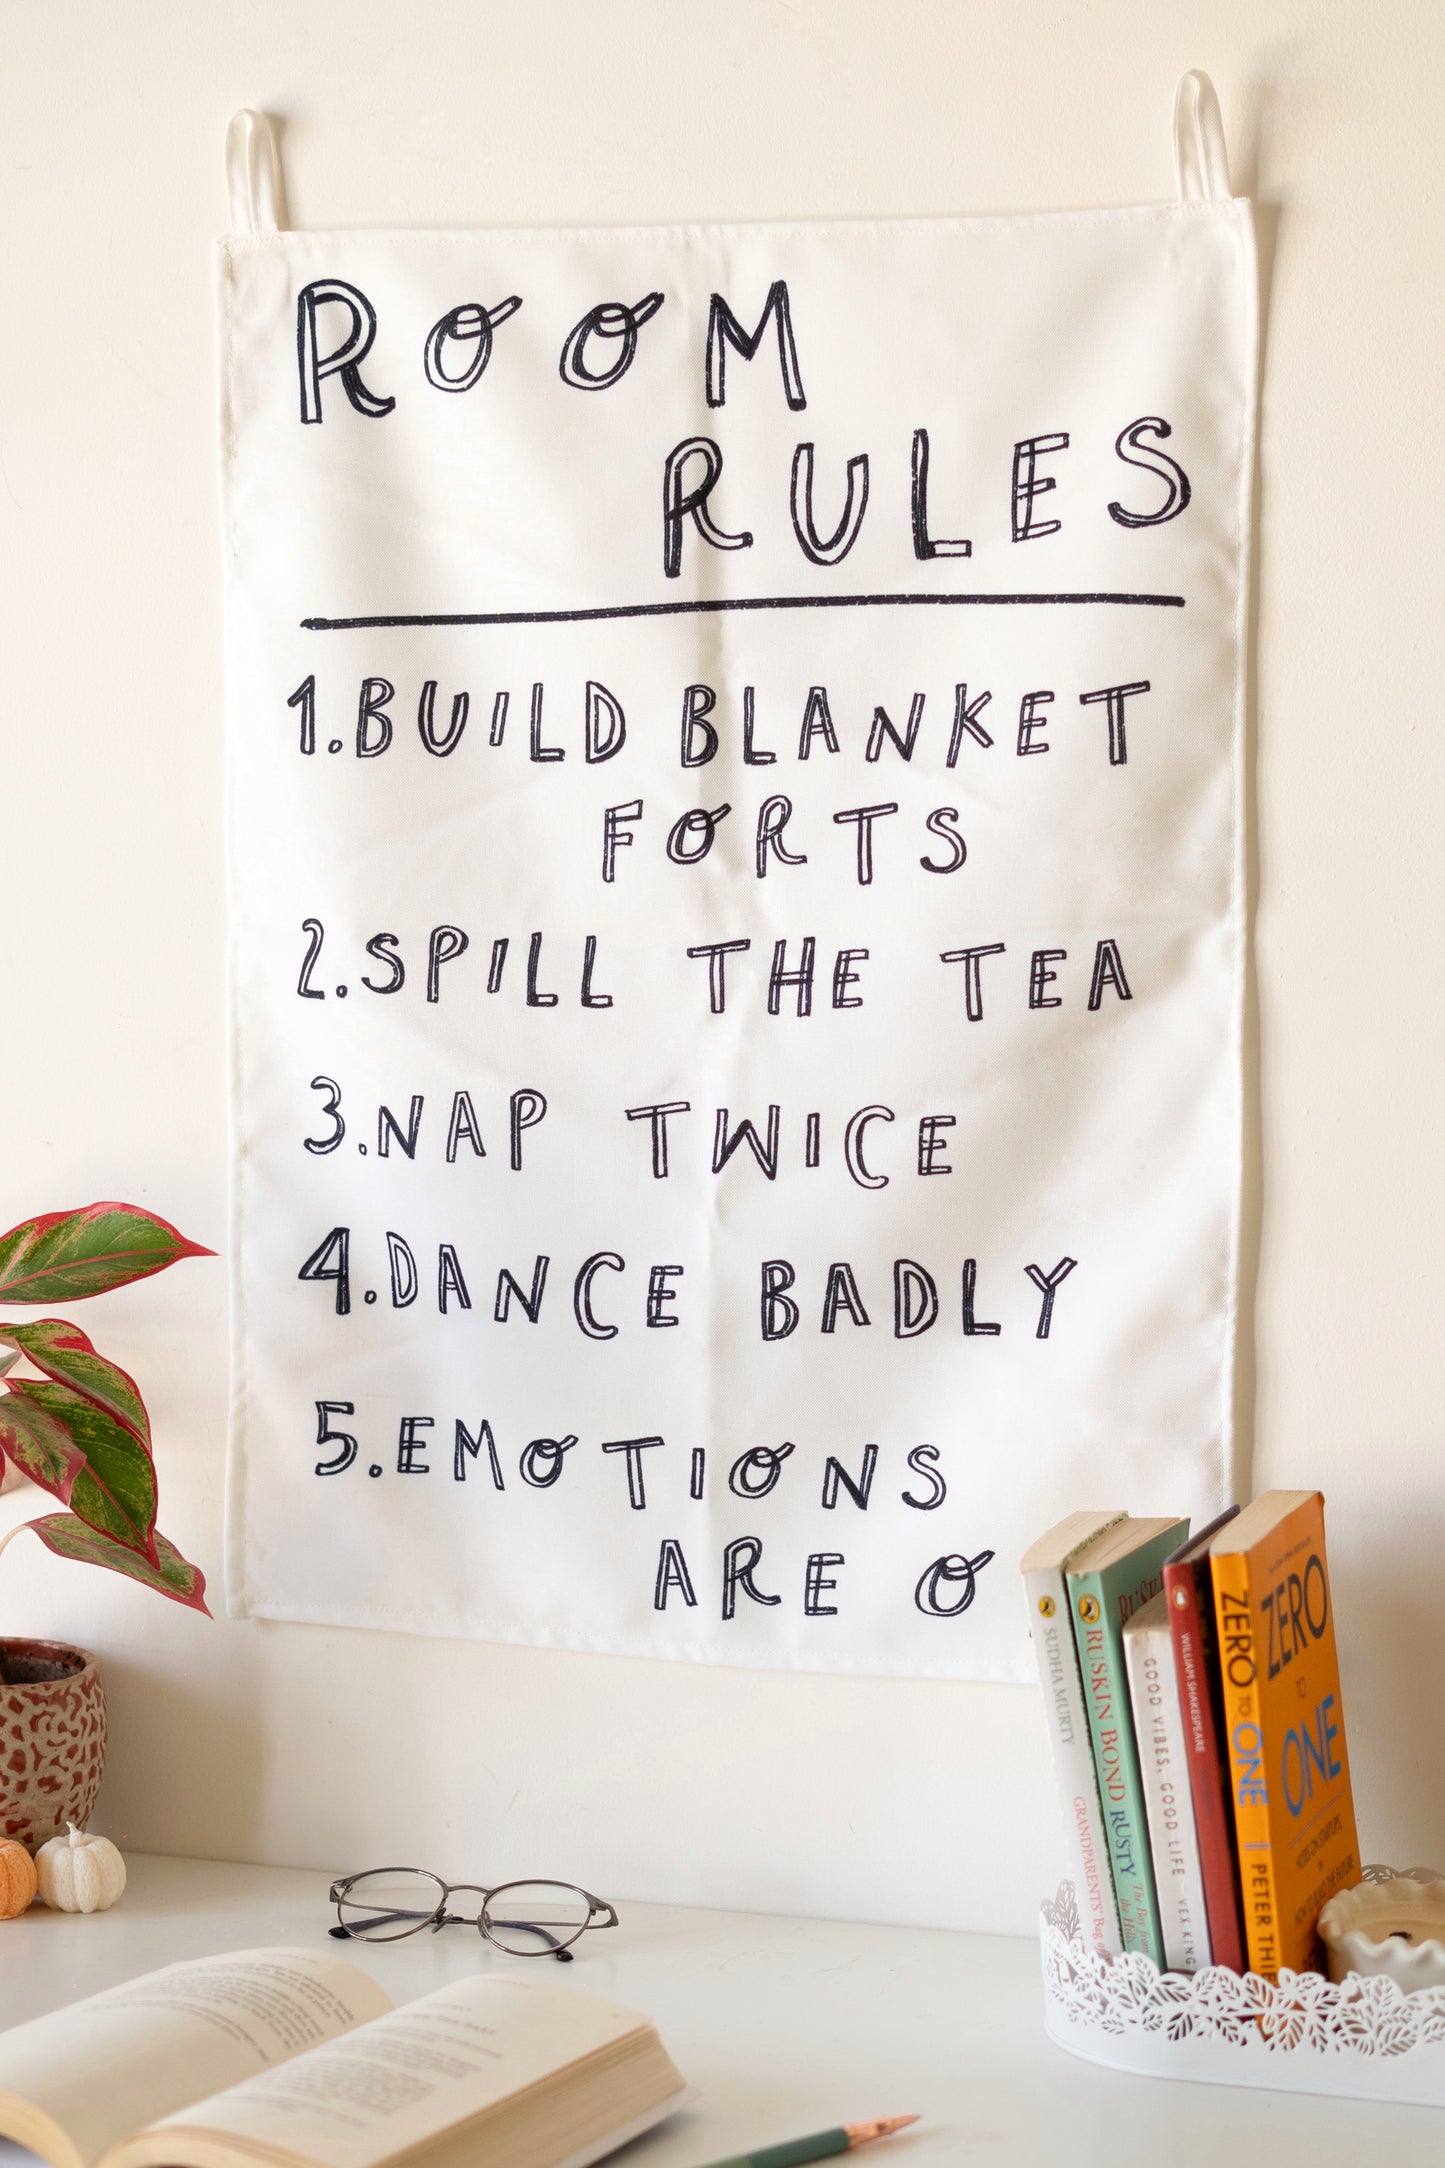 ROOM
RULES
1.BUILD BLANKET
FORTS
2.SPILL THE TEA
3.NAP TWICE
4.DANCE BADLY
5.EMOTIONS
ARE O
SUDHA MURTY
GRANDPARENTS' Bag of
RUSKIN BOND RUSTY
The Boy from
the Hills
GOOD VIBES, GOOD LIFE - VEX KING
WILLIAM SHAKESPEARE
ZERO TO ONE | PETER THIE
ZERO
TO
ONE
NOTES ON STARTUPS,
OR
HOW TO BUILD THE FUTURE